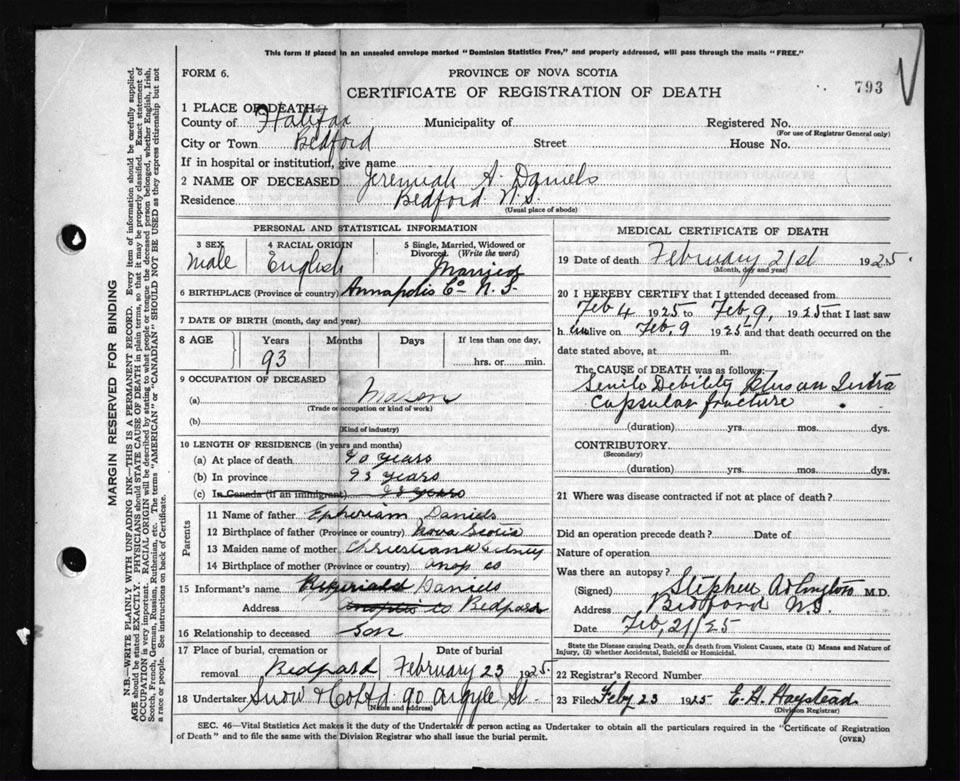 This form if placed in an unsealed envelope marked "Dominion Statistics Free," and properly addressed, will pass through the mails "FREE."
FORM 6.
PROVINCE OF NOVA SCOTIA
CERTIFICATE OF REGISTRATION OF DEATH
793
1 PLACE OF DEATH—
County of Halifax Municipality of Registered No.
(For use of Registrar General only)
City or Town Bedford Street House No.
If in hospital or institution, give name
2 NAME OF DECEASED Jeremiah A. Daniels
Residence Bedford N.S.
(Usual place of abode)
PERSONAL AND STATISTICAL INFORMATION
3 SEX 4 RACIAL ORIGIN 5 Single, Married, Widowed or Divorced (Write the word)
Male English Married
6 BIRTHPLACE (Province or country) Annapolis Co N.S.
7 DATE OF BIRTH (month, day and year)
8 AGE Years Months Days If less than one day,
93 hrs. or min.
9 OCCUPATION OF DECEASED
(a) Mason
(Trade or occupation or kind of work)
(b)
(Kind of industry)
10 LENGTH OF RESIDENCE (in years and months)
(a) At place of death 40 years
(b) In province 93 years
(c) In Canada (if an immigrant) 93 years
Parents
11 Name of father Epheriam Daniels
12 Birthplace of father (Province or country) Nova Scotia
13 Maiden name of mother
14 Birthplace of mother (Province or country) Anap co
15 Informant's name Daniels
Address Annapolis co Bedford
16 Relationship to deceased son
17 Place of burial, cremation or removal Date of burial
Bedford February 23 1925
18 Undertaker Snow & Co Ltd 90 Argyle St.
(Name and address)
MEDICAL CERTIFICATE OF DEATH
19 Date of death February 21st 1925.
(Month, day and year)
20 I HEREBY CERTIFY that I attended deceased from
Feb 4 1925 to Feb, 9, 1925 that I last saw
h im alive on Feb, 9 1925 and that death occurred on the
date stated above, at m.
The CAUSE of DEATH was as follows:
Senile Debility plus an Intra
Capsular fracture
(duration) yrs. mos. dys.
CONTRIBUTORY
(Secondary)
(duration) yrs. mos. dys.
21 Where was disease contracted if not at place of death?
Did an operation precede death? Date of
Nature of operation
Was there an autopsy?
(Signed) Stephen M.D.
Address Bedford N.S.
Date Feb, 21/25
State the Disease causing Death, or in death from Violent Causes, state (1) Means and Nature of Injury, (2) whether Accidental, Suicidal or Homicidal.
22 Registrar's Record Number
23 Filed Feby 23 1925 E. H. Haystead
(Division Registrar)
SEC. 46—Vital Statistics Act makes it the duty of the Undertaker or person acting as Undertaker to obtain all the particulars required in the "Certificate of Registration
of Death" and to file the same with the Division Registrar who shall issue the burial permit.
(OVER)
MARGIN RESERVED FOR BINDING
N.B.—WRITE PLAINLY WITH UNFADING INK—THIS IS A PERMANENT RECORD. Every item of information should be carefully supplied.
AGE should be stated EXACTLY. PHYSICIANS should STATE CAUSE OF DEATH in plain terms, so that it may be properly classified. Exact statement of
OCCUPATION is very important. RACIAL ORIGIN will be described by stating to what people or tongue the deceased person belonged, whether English, Irish,
Scotch, French, German, Russian, Ruthenian, etc. The terms "AMERICAN" or "CANADIAN" SHOULD NOT BE USED as they express citizenship but not
a race or people. See instructions on back of Certificate.